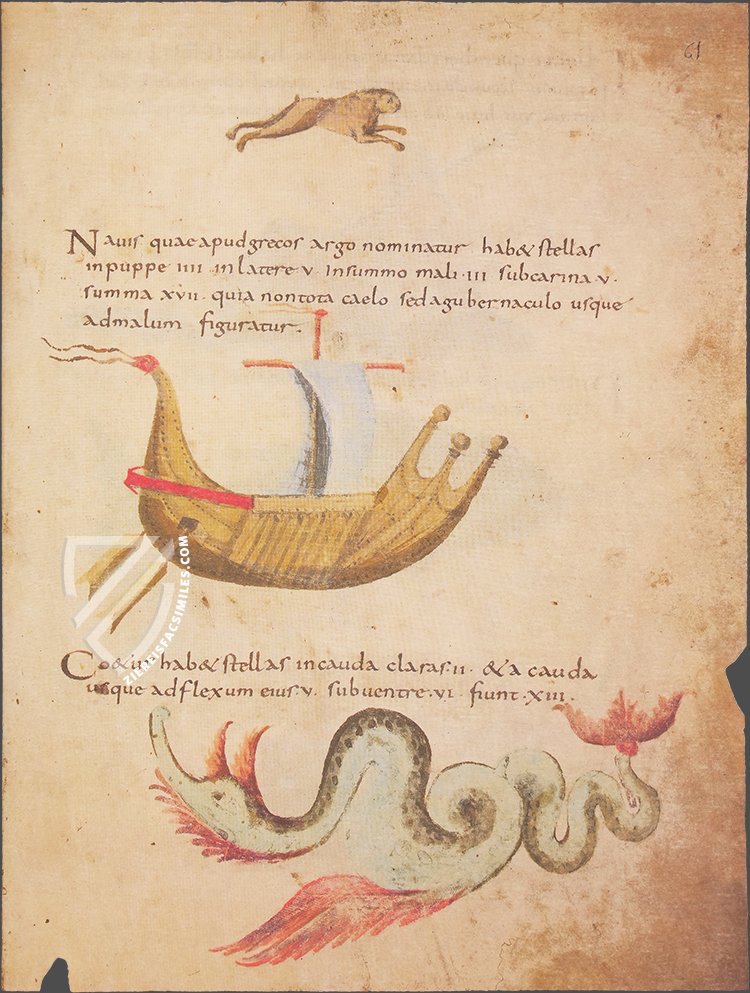 61
Nauis quae apud grecos argo nominatur hab&stellas
inpuppe IIII · inlatere · V · Insummo mali · III · subcarina · V ·
summa XVII · quia nontota caelo sedagubernaculo usque
admalum figuratur ·
hab&stellas incauda claras · II · &a cauda
usque adflexum eius · V · subuentre · VI · fiunt · XIII ·
ZIEREISFACSIMILES.COM